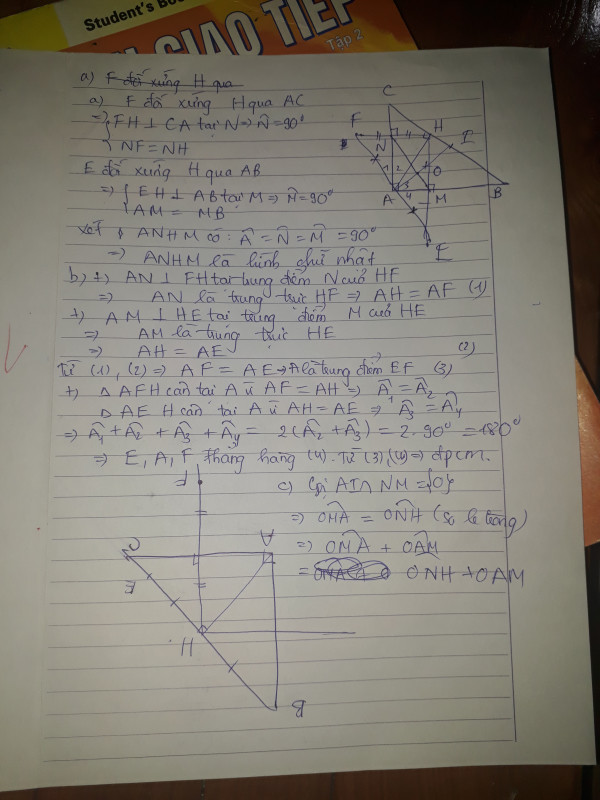 Student's Boo
GIAO TIẾP
Tập 2
a) F đối xứng H qua
a) F đối xứng H qua AC
=> FH ⊥ CA tại N => N̂ = 90°
NF = NH
E đối xứng H qua AB
=> EH ⊥ AB tại M => M̂ = 90°
AM = MB
Xét ◊ ANHM có: Â = N̂ = M̂ = 90°
=> ANHM là hình chữ nhật
b) +) AN ⊥ FH tại trung điểm N của HF
=> AN là trung trực HF => AH = AF (1)
+) AM ⊥ HE tại trung điểm M của HE
=> AM là trung trực HE
=> AH = AE (2)
Từ (1), (2) => AF = AE => A là trung điểm EF (3)
+) Δ AFH cân tại A vì AF = AH => Â1 = Â2
Δ AEH cân tại A vì AH = AE => Â3 = Â4
=> Â1 + Â2 + Â3 + Â4 = 2(Â2 + Â3) = 2.90° = 180°
=> E, A, F thẳng hàng (4). Từ (3),(4) => đpcm.
c) Gọi AI ∩ NM = {O}
=> OMA = ONH (so le trong)
=> OMA + OAM
= ONH + OAM
C
F
H
N
I
O
1
2
3
4
A
M
B
E
F
C
A
E
H
B